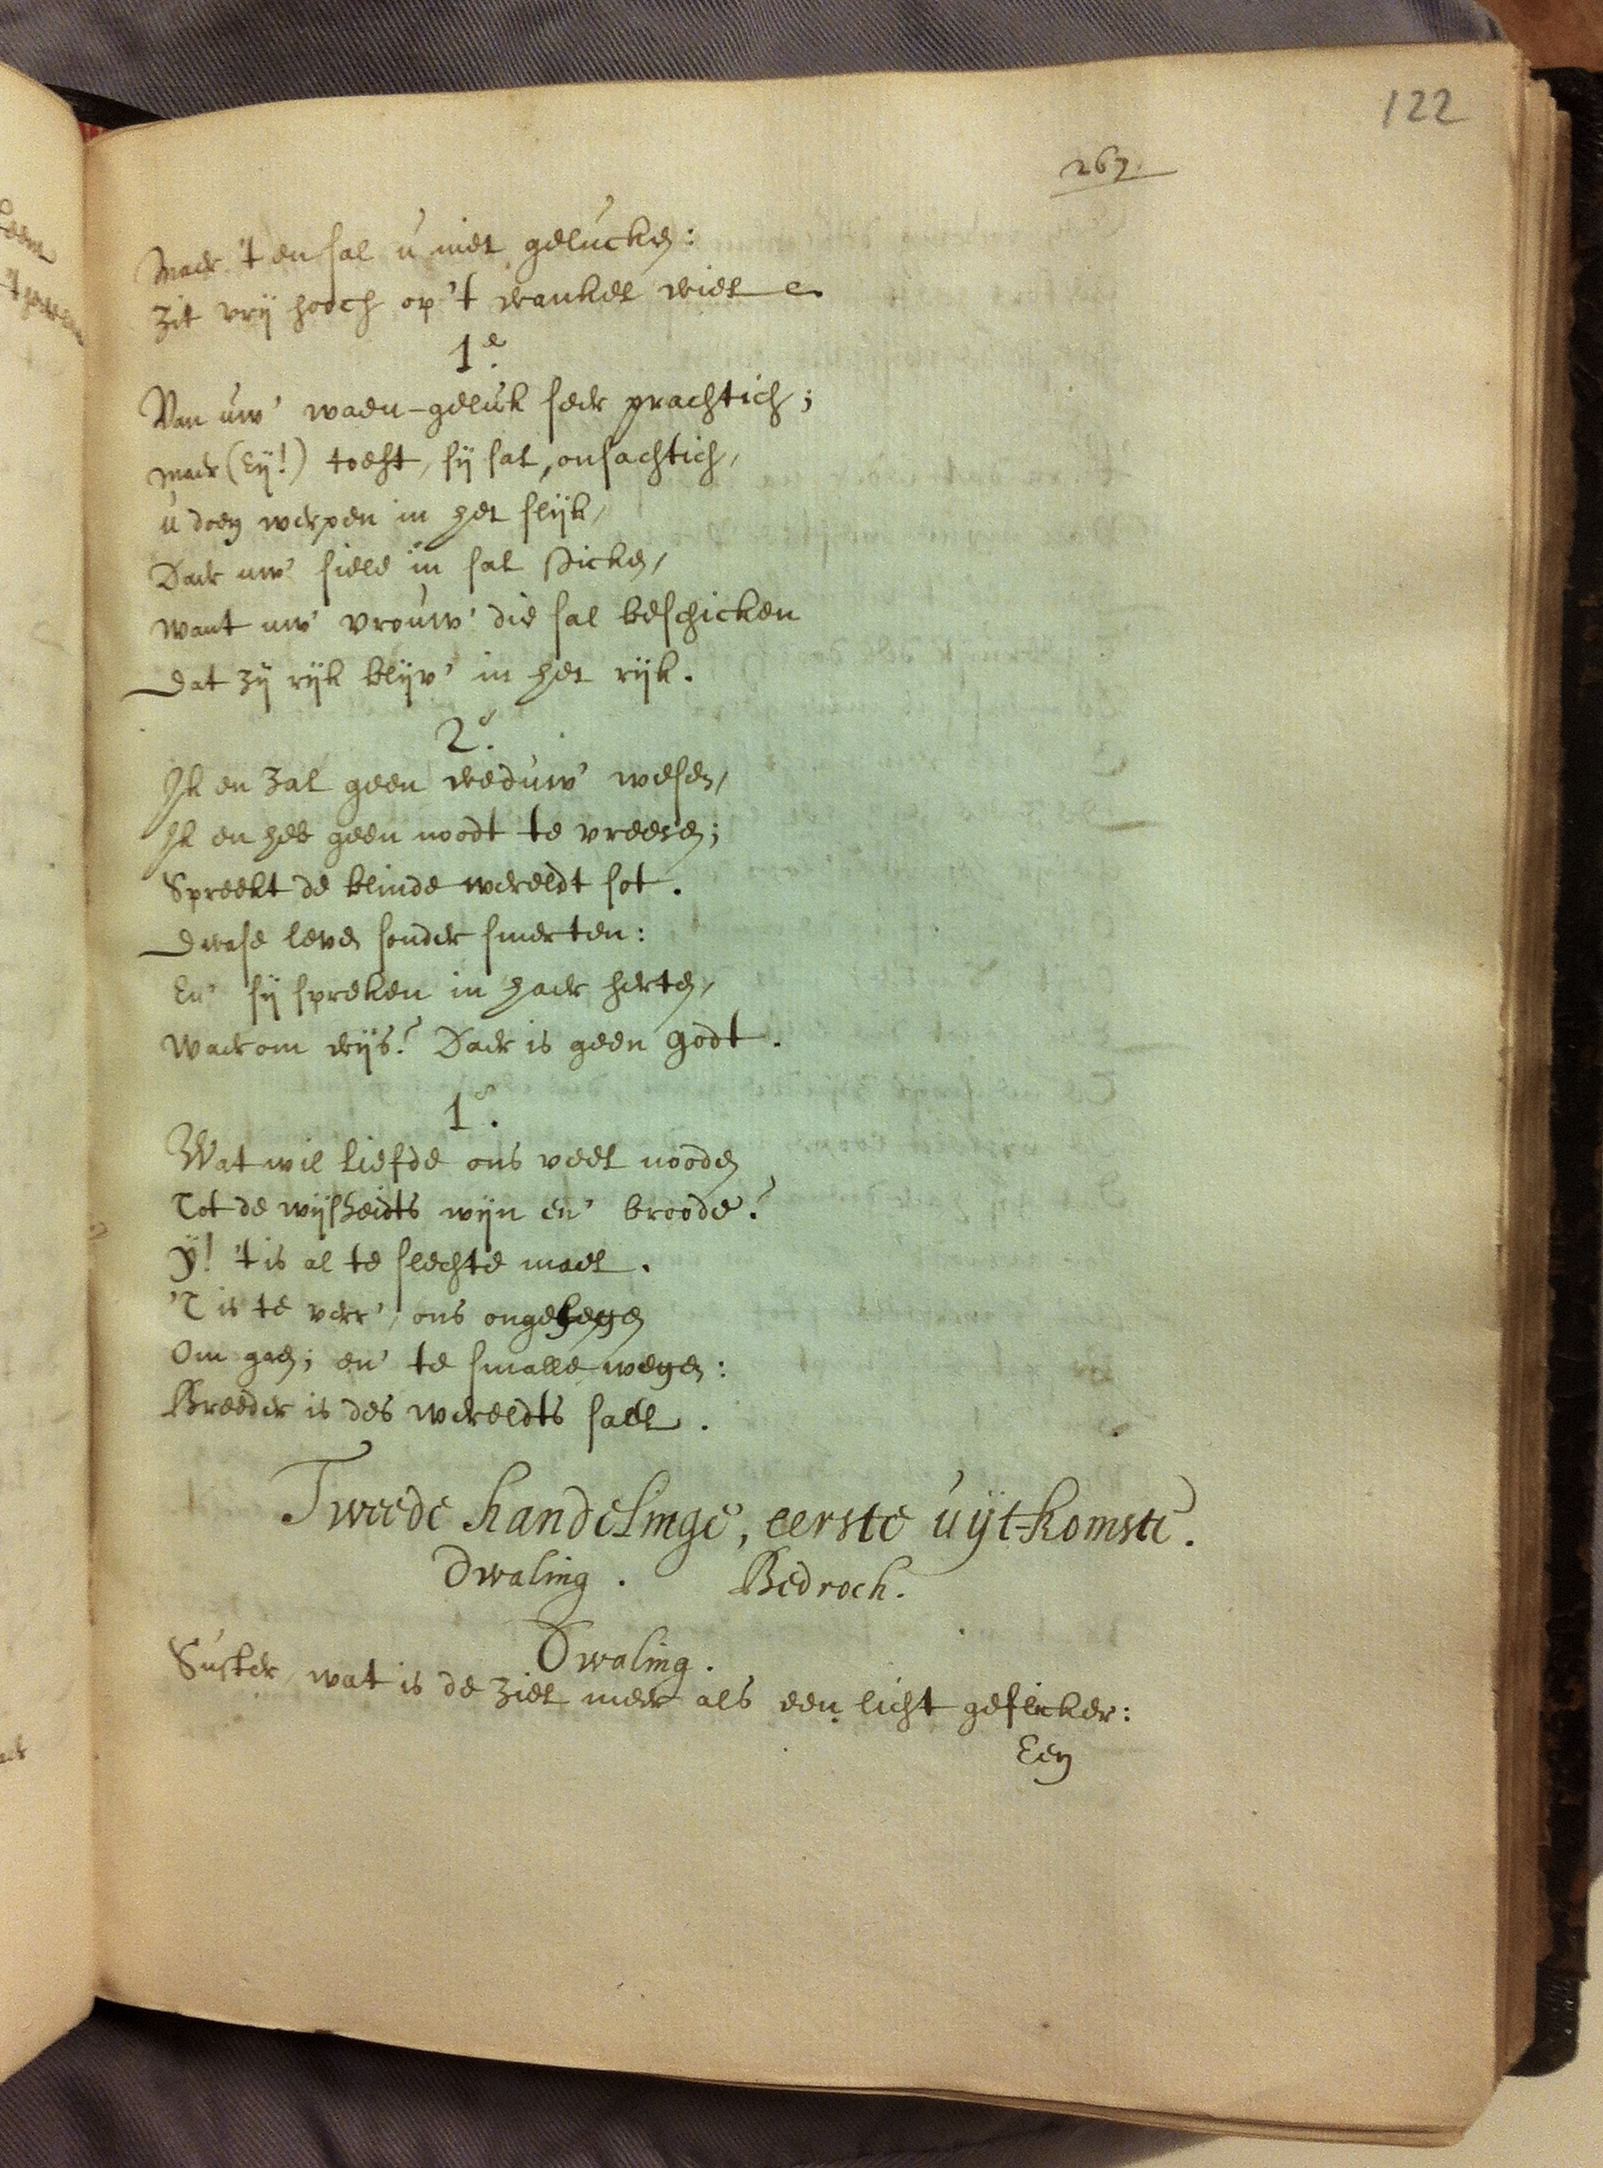 122
267.
Maer 't en sal u niet gelucken:
Zit vrij hooch op 't wankel wiel
1e.
Van uw' waen-geluk seer prachtich;
maer (Eÿ!) toeft, sij sal, onsachtich,
u doen werpen in het slijk,
Daer uw' siele in sal sticken,
want uw' vrouw' die sal beschicken
dat zij rijk blijv' in het rijk.
2e.
Ik en zal geen weduw' wesen,
Ik en heb geen noodt te vreesen;
Spreekt de blinde wereldt sot.
Dwase leven sonder smerten:
En' sij spreken in haer herten,
Waerom wijs? Daer is geen Godt.
1e.
Wat wil liefde ons veel nooden
Tot de wijsheidts wijn en' broode?
Ÿ! 't is al te slechte mael.
'T is te verr', ons ongelegen
Om gaen; en' te smalle wegen:
Breeder is des wereldts sael.
Tweede handelinge, eerste uÿt-komste.
Dwaling. Bedroch.
Dwaling.
Suster, wat is de ziel meer als een licht geflicker:
Een